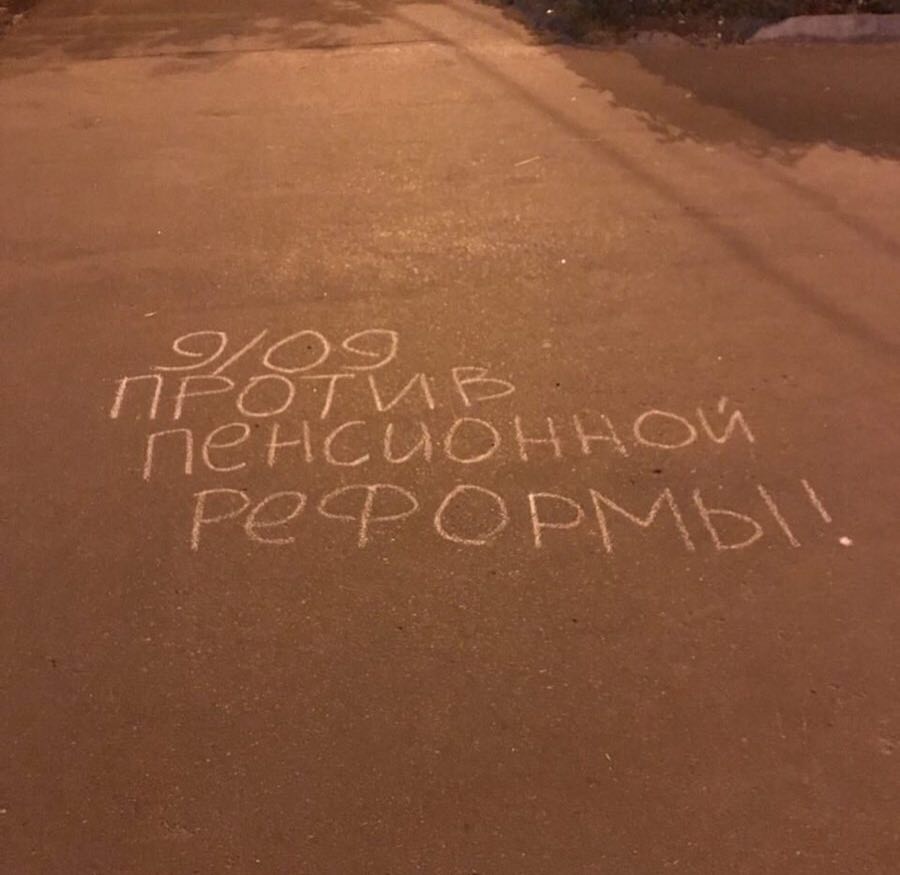 9/09
ПРОТИВ
ПеНСИОННОЙ
РеФОРМЫ!